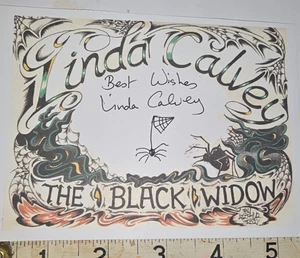 Linda Calvey
Best Wishes
Linda Calvey
THE BLACK WIDOW
1 2 3 4 5